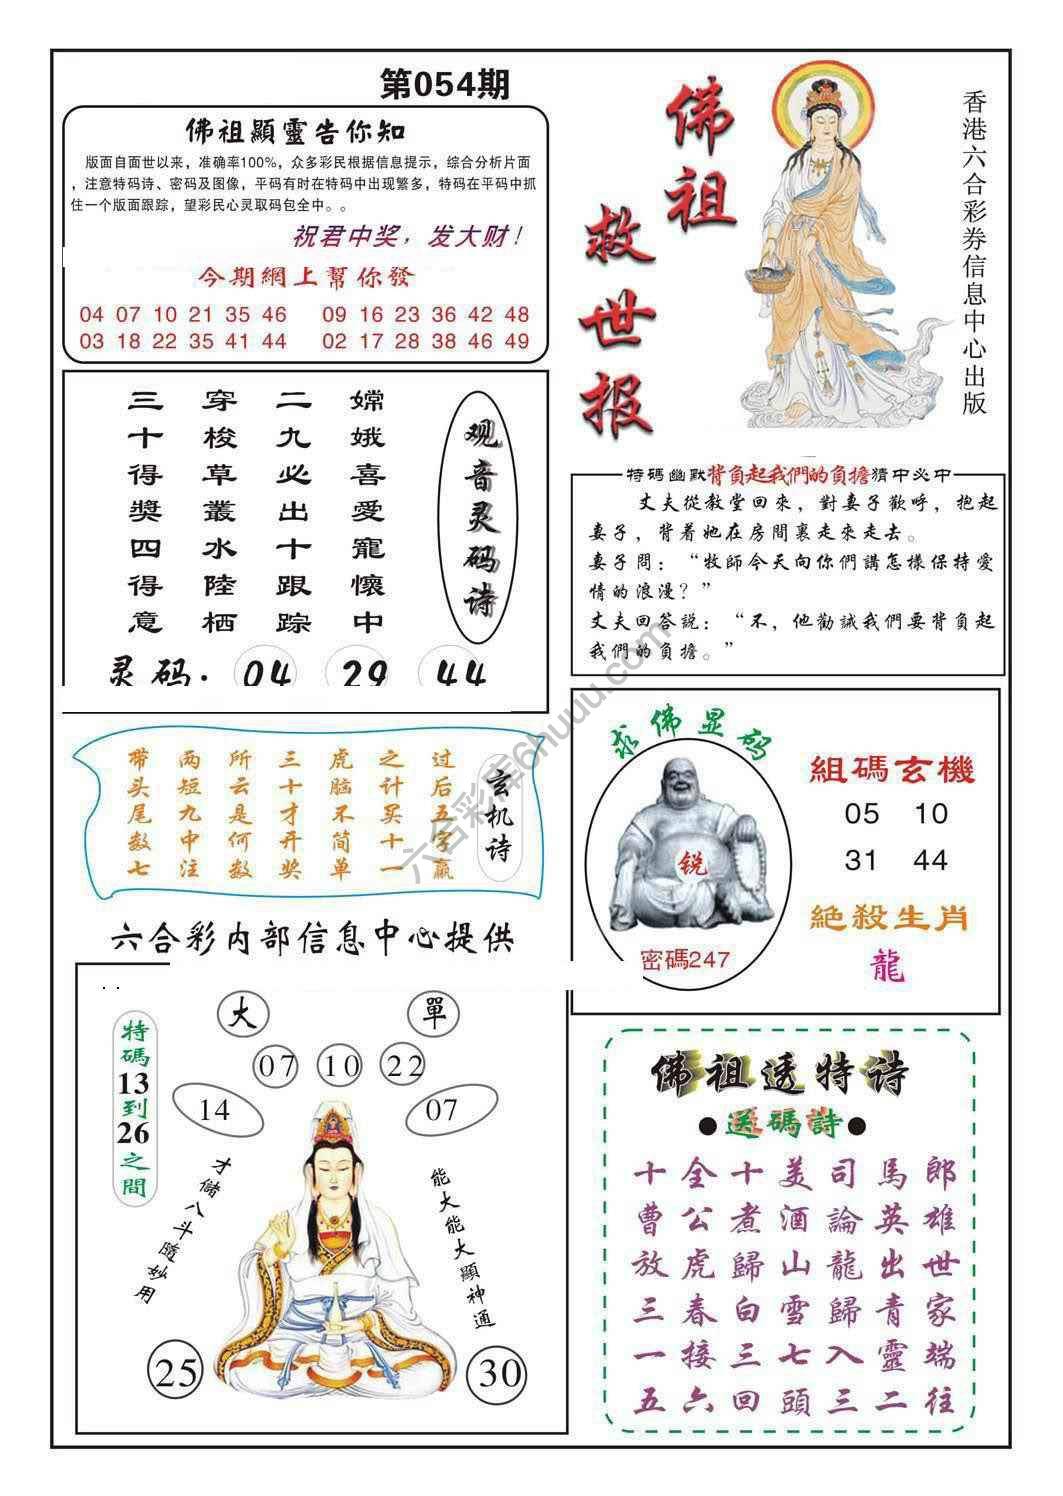 第054期
佛祖顯靈告你知
版面自面世以来，准确率100%，众多彩民根据信息提示，综合分析片面
，注意特码诗、密码及图像，平码有时在特码中出现繁多，特码在平码中抓
住一个版面跟踪，望彩民心灵取码包全中。。
祝君中奖，发大财！
今期網上幫你發
04 07 10 21 35 46 09 16 23 36 42 48
03 18 22 35 41 44 02 17 28 38 46 49
佛祖
救世报
香港六合彩券信息中心出版
观音灵码诗
嫦娥喜愛寵懷中
二九必出十跟踪
穿梭草叢水陸栖
三十得獎四得意
灵码：04 29 44
特碼幽默背負起我們的負擔猜中必中
丈夫從教堂回來，對妻子歡呼，抱起
妻子，背着她在房間裏走來走去。
妻子問：“牧師今天向你們講怎樣保持愛
情的浪漫？”
丈夫回答説：“不，他勸誡我們要背負起
我們的負擔。”
玄机诗
过后五字赢
之计买十一
虎脑不简单
三十才开奖
所云是何数
两短九中注
带头尾数七
求佛显码
锐
密碼247
組碼玄機
05 10
31 44
絶殺生肖
龍
六合彩内部信息中心提供
特碼13到26之間
大 單
07 10 22
14 07
才儲八斗隨妙用
能大能大顯神通
25 30
佛祖透特诗
●送碼詩●
十全十美司馬郎
曹公煮酒論英雄
放虎歸山龍出世
三春白雪歸青家
一接三七入靈端
五六回頭三二往
六合彩库6huuu.com